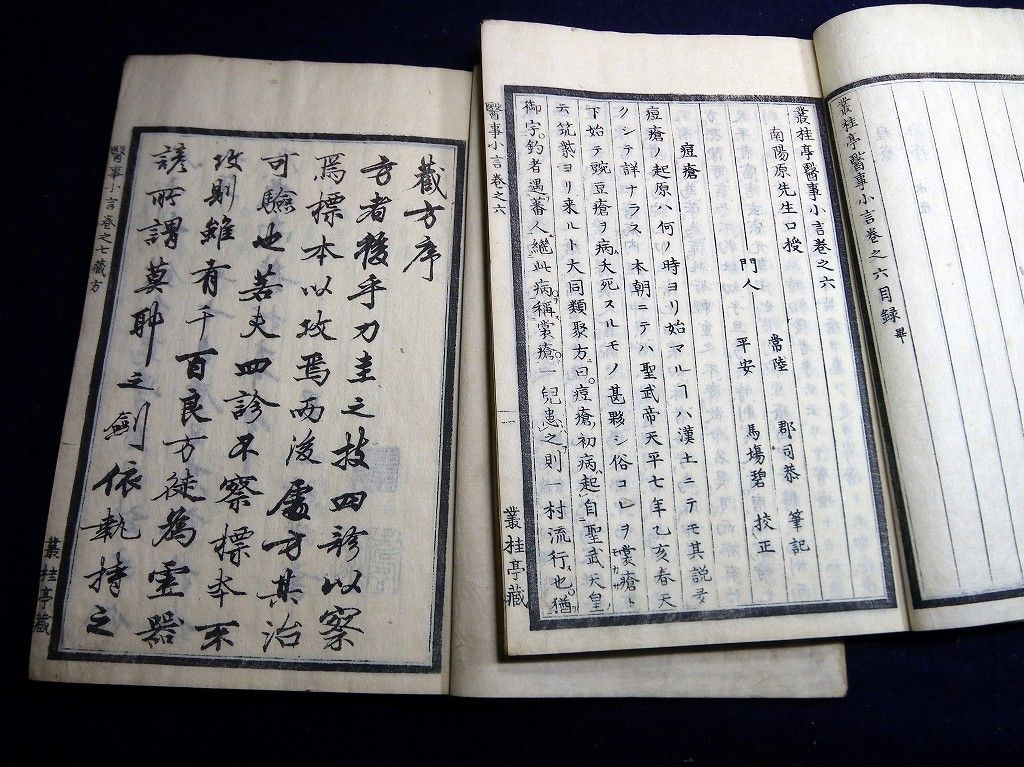 叢桂亭醫事小言卷之六目録畢
叢桂亭醫事小言卷之六
南陽原先生口授
常陸 郡司恭 筆記
門人
平安 馬場碧 校正
痘瘡
痘瘡ノ起原ハ何ノ時ヨリ始マルヿハ漢土ニテモ其説多
クシテ詳ナラス本朝ニテハ聖武帝天平七年乙亥春天
下始テ豌豆瘡ヲ病夭死スルモノ甚夥シ俗コレヲ裳瘡ト
云筑紫ヨリ来ルト大同類聚方曰痘瘡初病起自聖武天皇
御宇釣者遇蕃人継此病稱裳瘡一兒患之則一村流行也猶
醫事小言卷之六
一
叢桂亭藏
藏方序
方者後乎刀圭之技四診以察
焉標本以攻焉而後處方其治
可驗也若夫四診不察標本不
攻則雖有千百良方徒為霊器
諺所謂莫耶之劍依執持之
醫事小言卷之七藏方
叢桂亭藏